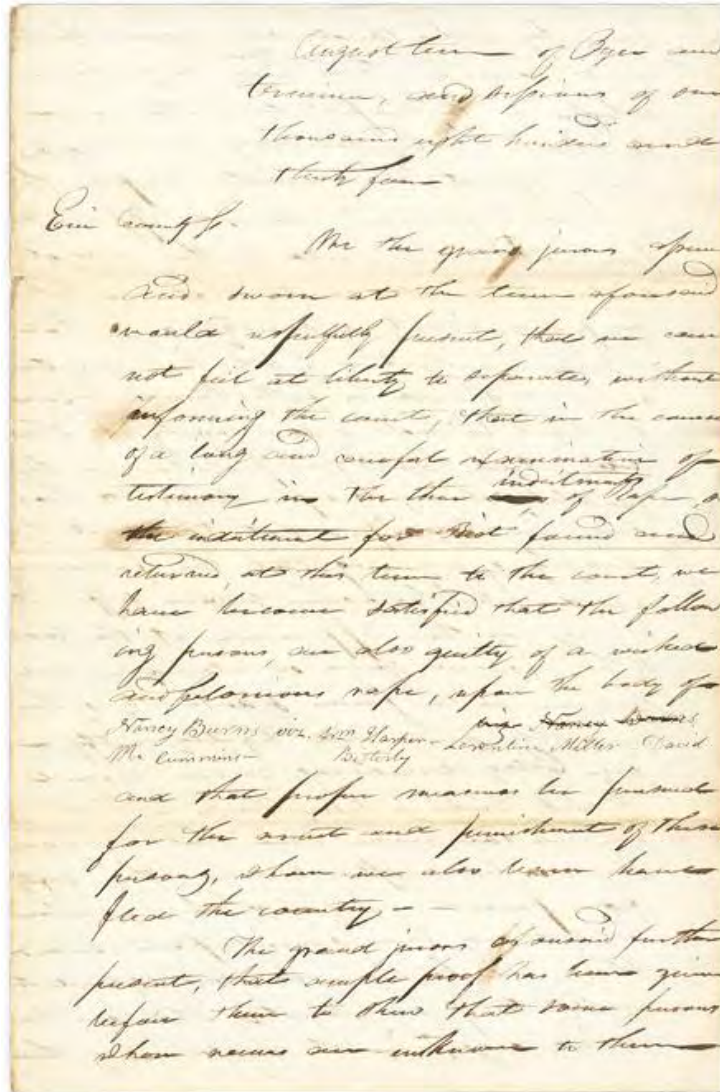 August term of Oyer and
terminer, and sessions of one
thousand eight hundred and
thirty four
Erie County ss.
We the grand jurors
and sworn at the term aforesaid
would respectfully present, that we can
not feel at liberty to separate, without
informing the court, that in the course
of a long and careful examination of
testimony in the three indictments of rape,
the indictment for Riot found and
returned, at this term to the court, we
have become satisfied that the follow
ing persons, are also guilty of a wicked
and felonious rape, upon the body of
viz Nancy Burns
Nancy Burns viz. Wm Harper - Miller David
Mc Cummins - 
and that proper measures be pursued
for the arrest and punishment of these
persons, whom we also learn have
fled the country -
The grand jurors aforesaid further
present, that ample proof has been given
before them to show that some persons
whom names are unknown to them